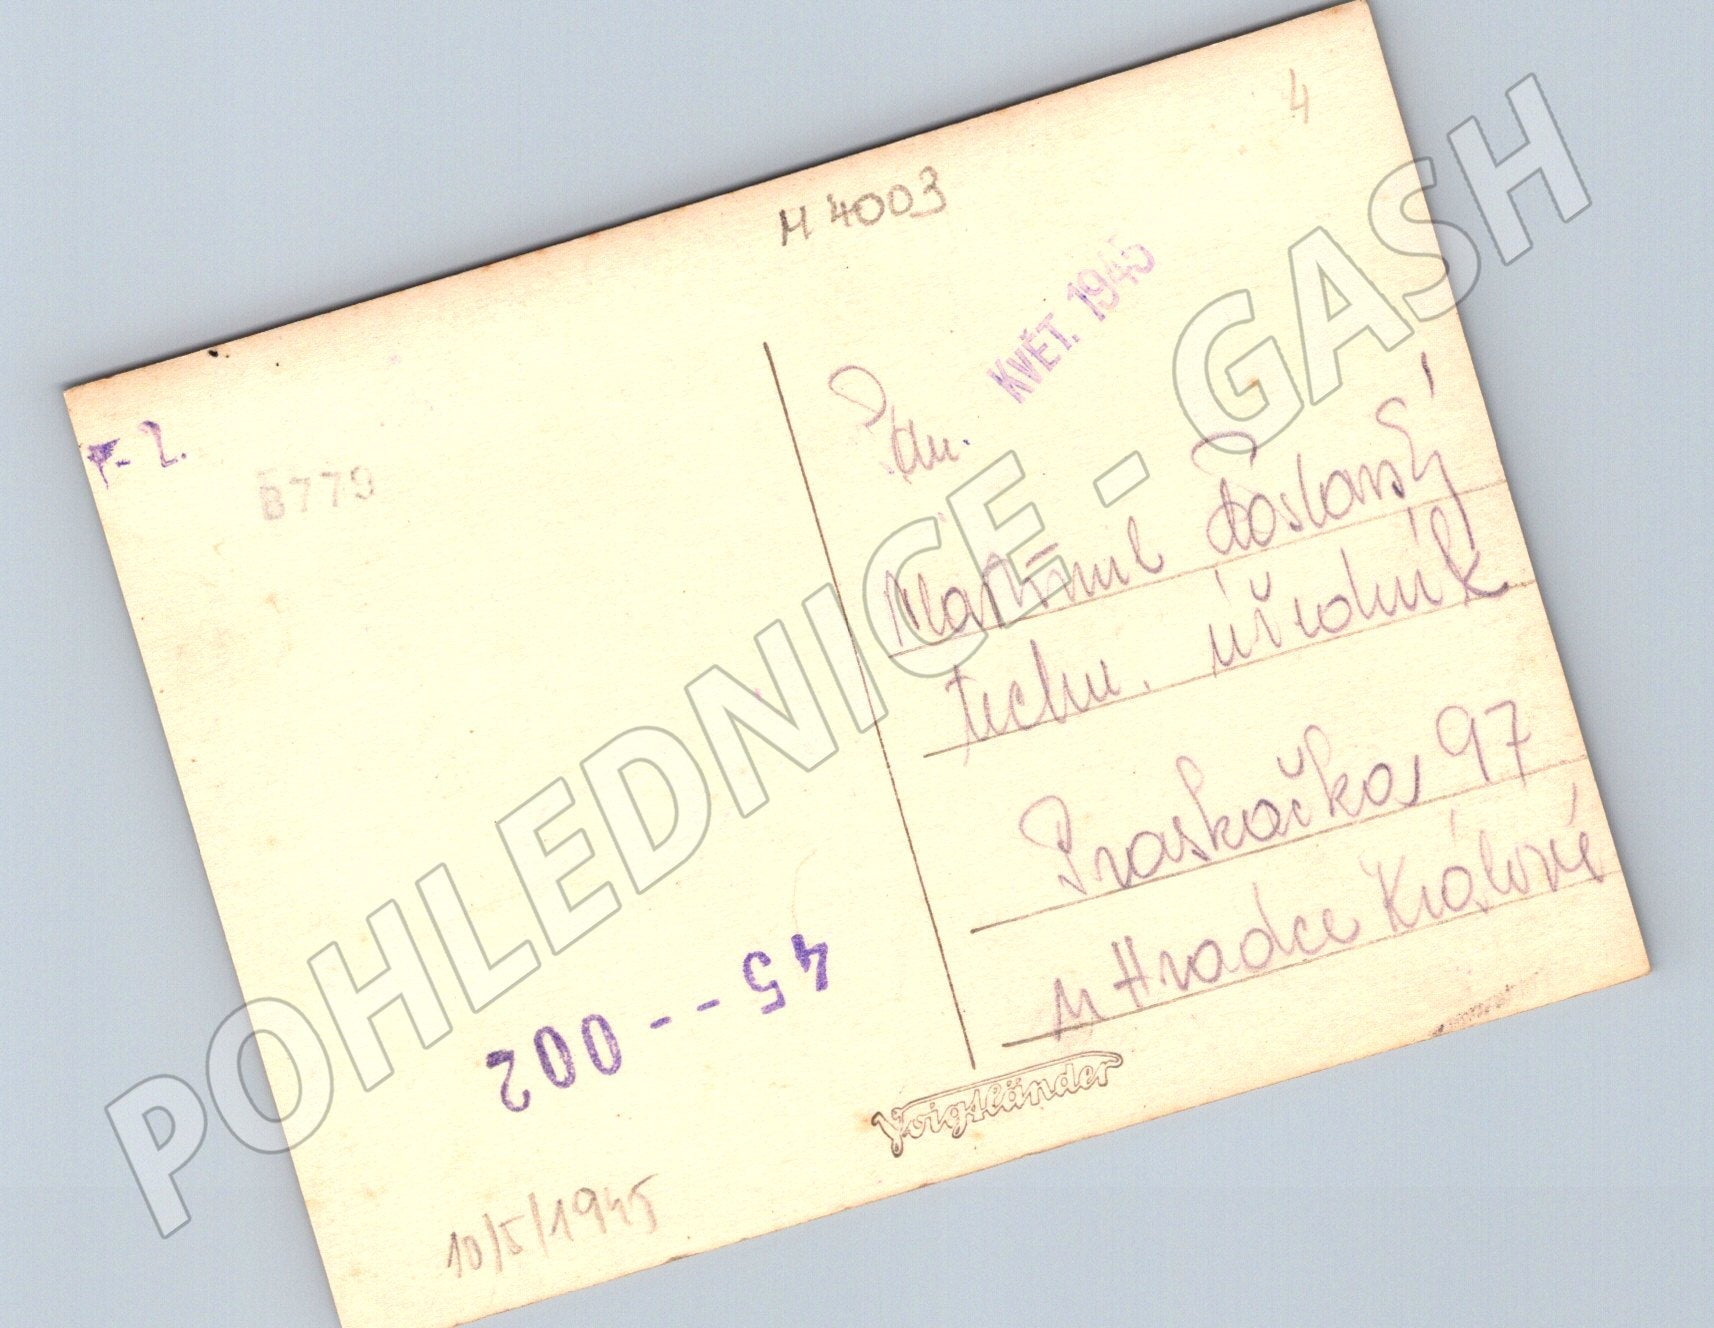 4
M 4003
KVĚT. 1945
B779
Pan.
techn. úředník
Praskačka 97
u Hradce Králové
45--002
Voigtländer
10/5/1945
POHLEDNICE - GASH